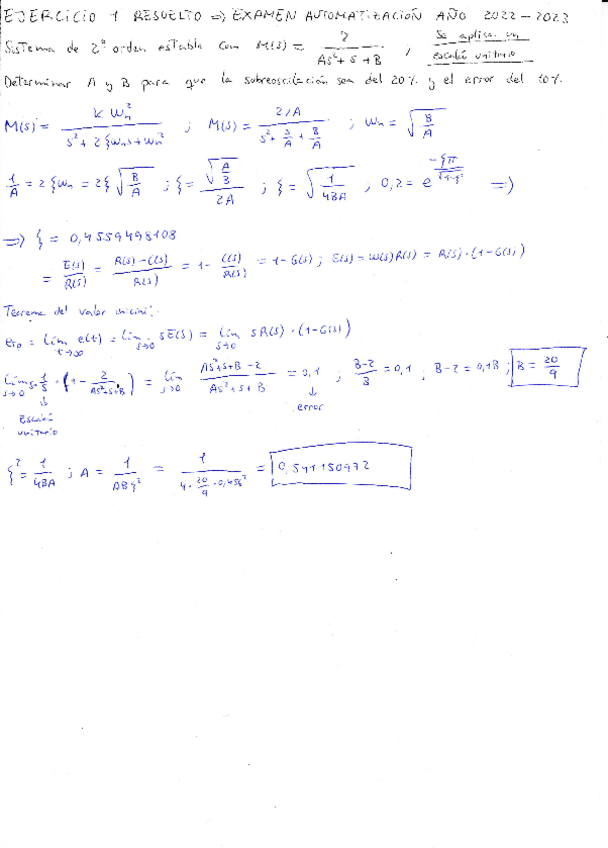 EJERCICIO 1 RESUELTO => EXAMEN AUTOMATIZACIÓN AÑO 2022-2023
Sistema de 2º orden estable con M(s) = 2 / (As²+s+B) , Se aplica un escalón unitario
Determinar A y B para que la sobreoscilación sea del 20% y el error del 10%.
M(s) = K Wn² / (s²+2ξWns+Wn²) ; M(s) = (2/A) / (s²+s/A+B/A) ; Wn = √(B/A)
1/A = 2ξWn = 2ξ√(B/A) ; ξ = √(A/B) / 2A ; ξ = √(1/4BA) ; 0,2 = e^(-ξπ/√(1-ξ²)) =>
=> ξ = 0,4559498108
= E(s)/R(s) = (R(s)-C(s))/R(s) = 1- C(s)/R(s) = 1-G(s) ; E(s) = W(s)R(s) = R(s)·(1-G(s))
Teorema del valor inicial:
erp = lím t→∞ e(t) = lím s→0 sE(s) = lím s→0 sR(s)·(1-G(s))
lím s→0 s·1/s·(1- 2/(As²+s+B)) = lím s→0 (As²+s+B-2)/(As²+s+B) = 0,1 ; (B-2)/B = 0,1 ; B-2 = 0,1B ; B = 20/9
↓ ↓
Escalón error
unitario
ξ² = 1/4BA ; A = 1/ABξ² = 1/(4·20/9·0,456²) = 0,541150972